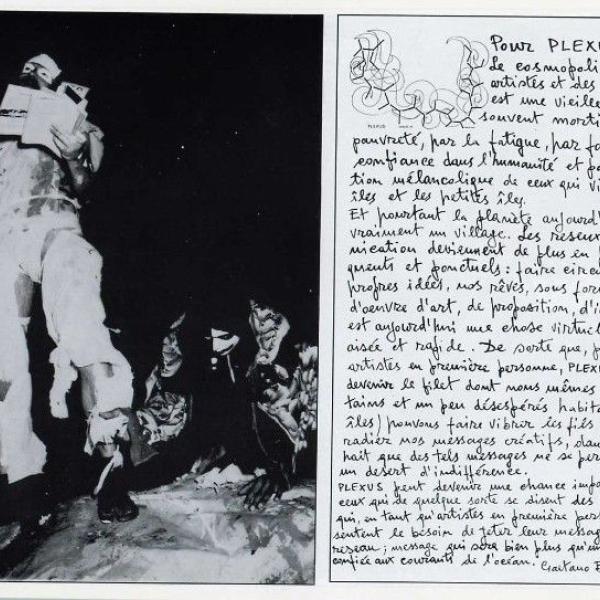 Pour PLEXUS
Le cosmopoli
artistes et des
est une vieille
souvent morti
pauvreté, par la fatigue, par fa
confiance dans l'humanité et pa
tion mélancolique de ceux qui vi
îles et les petites îles.
Et pourtant la planète aujourd'
vraiment un village. Les reseux
nication deviennent de plus en
quents et ponctuels: faire circu
propres idées, nos rêves, sous for
d'oeuvre d'art, de proposition, d'i
est aujourd'hui une chose virtuel
aisée et rapide. De sorte que,
artistes en première personne, PLEXU
devenir le filet dont nous mêmes
tains et un peu désespérés habita
îles) pouvons faire vibrer les fiés
radier nos messages créatifs, dan
hait que des tels messages ne se per
un desert d'indifférence.
PLEXUS peut devenir une chance impo
ceux qui de quelque sorte se disent des
qui, en tant qu'artistes en première pers
sentent le besoin de jeter leur messag
reseau; message qui sera bien plus qu'un
confiée aux courants de l'océan. Gaetano
PLEXUS